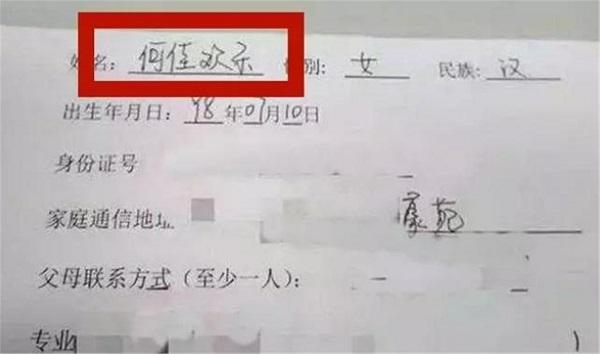 姓名: 何佳欢乐 性别: 女 民族: 汉
出生年月日: 98年07月10日
身份证号
家庭通信地址
父母联系方式(至少一人):
专业 )